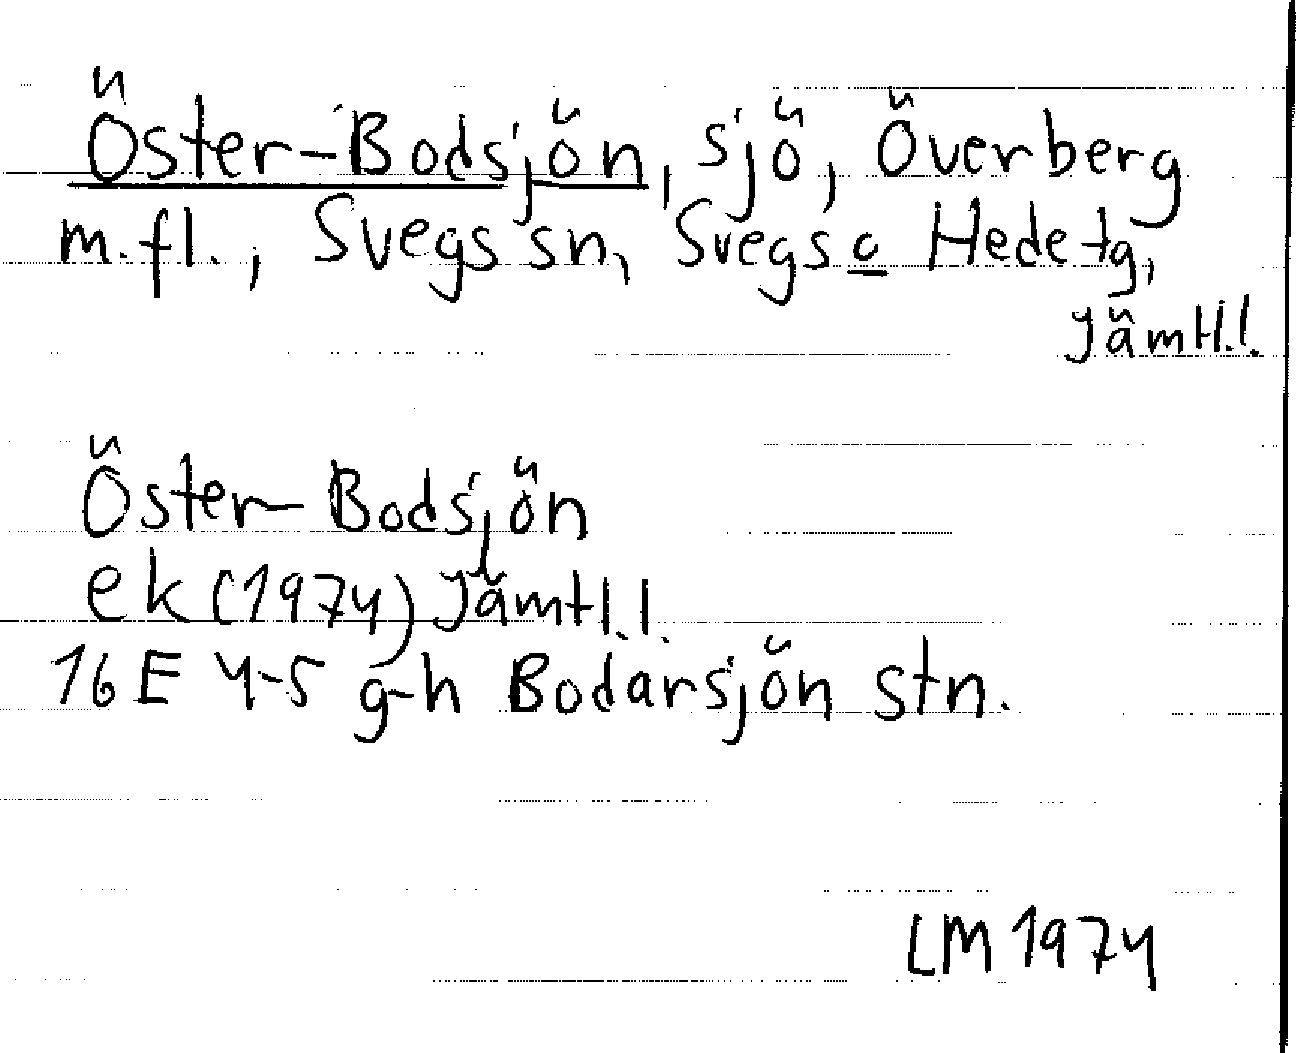 Öster-Bodsjön, sjö, Överberg
m.fl., Svegs sn, Svegs o Hede tg,
Jämtl.l.
Öster-Bodsjön
ek (1974) Jämtl.l.
16E 4-5 g-h Bodarsjön stn.
LM 1974